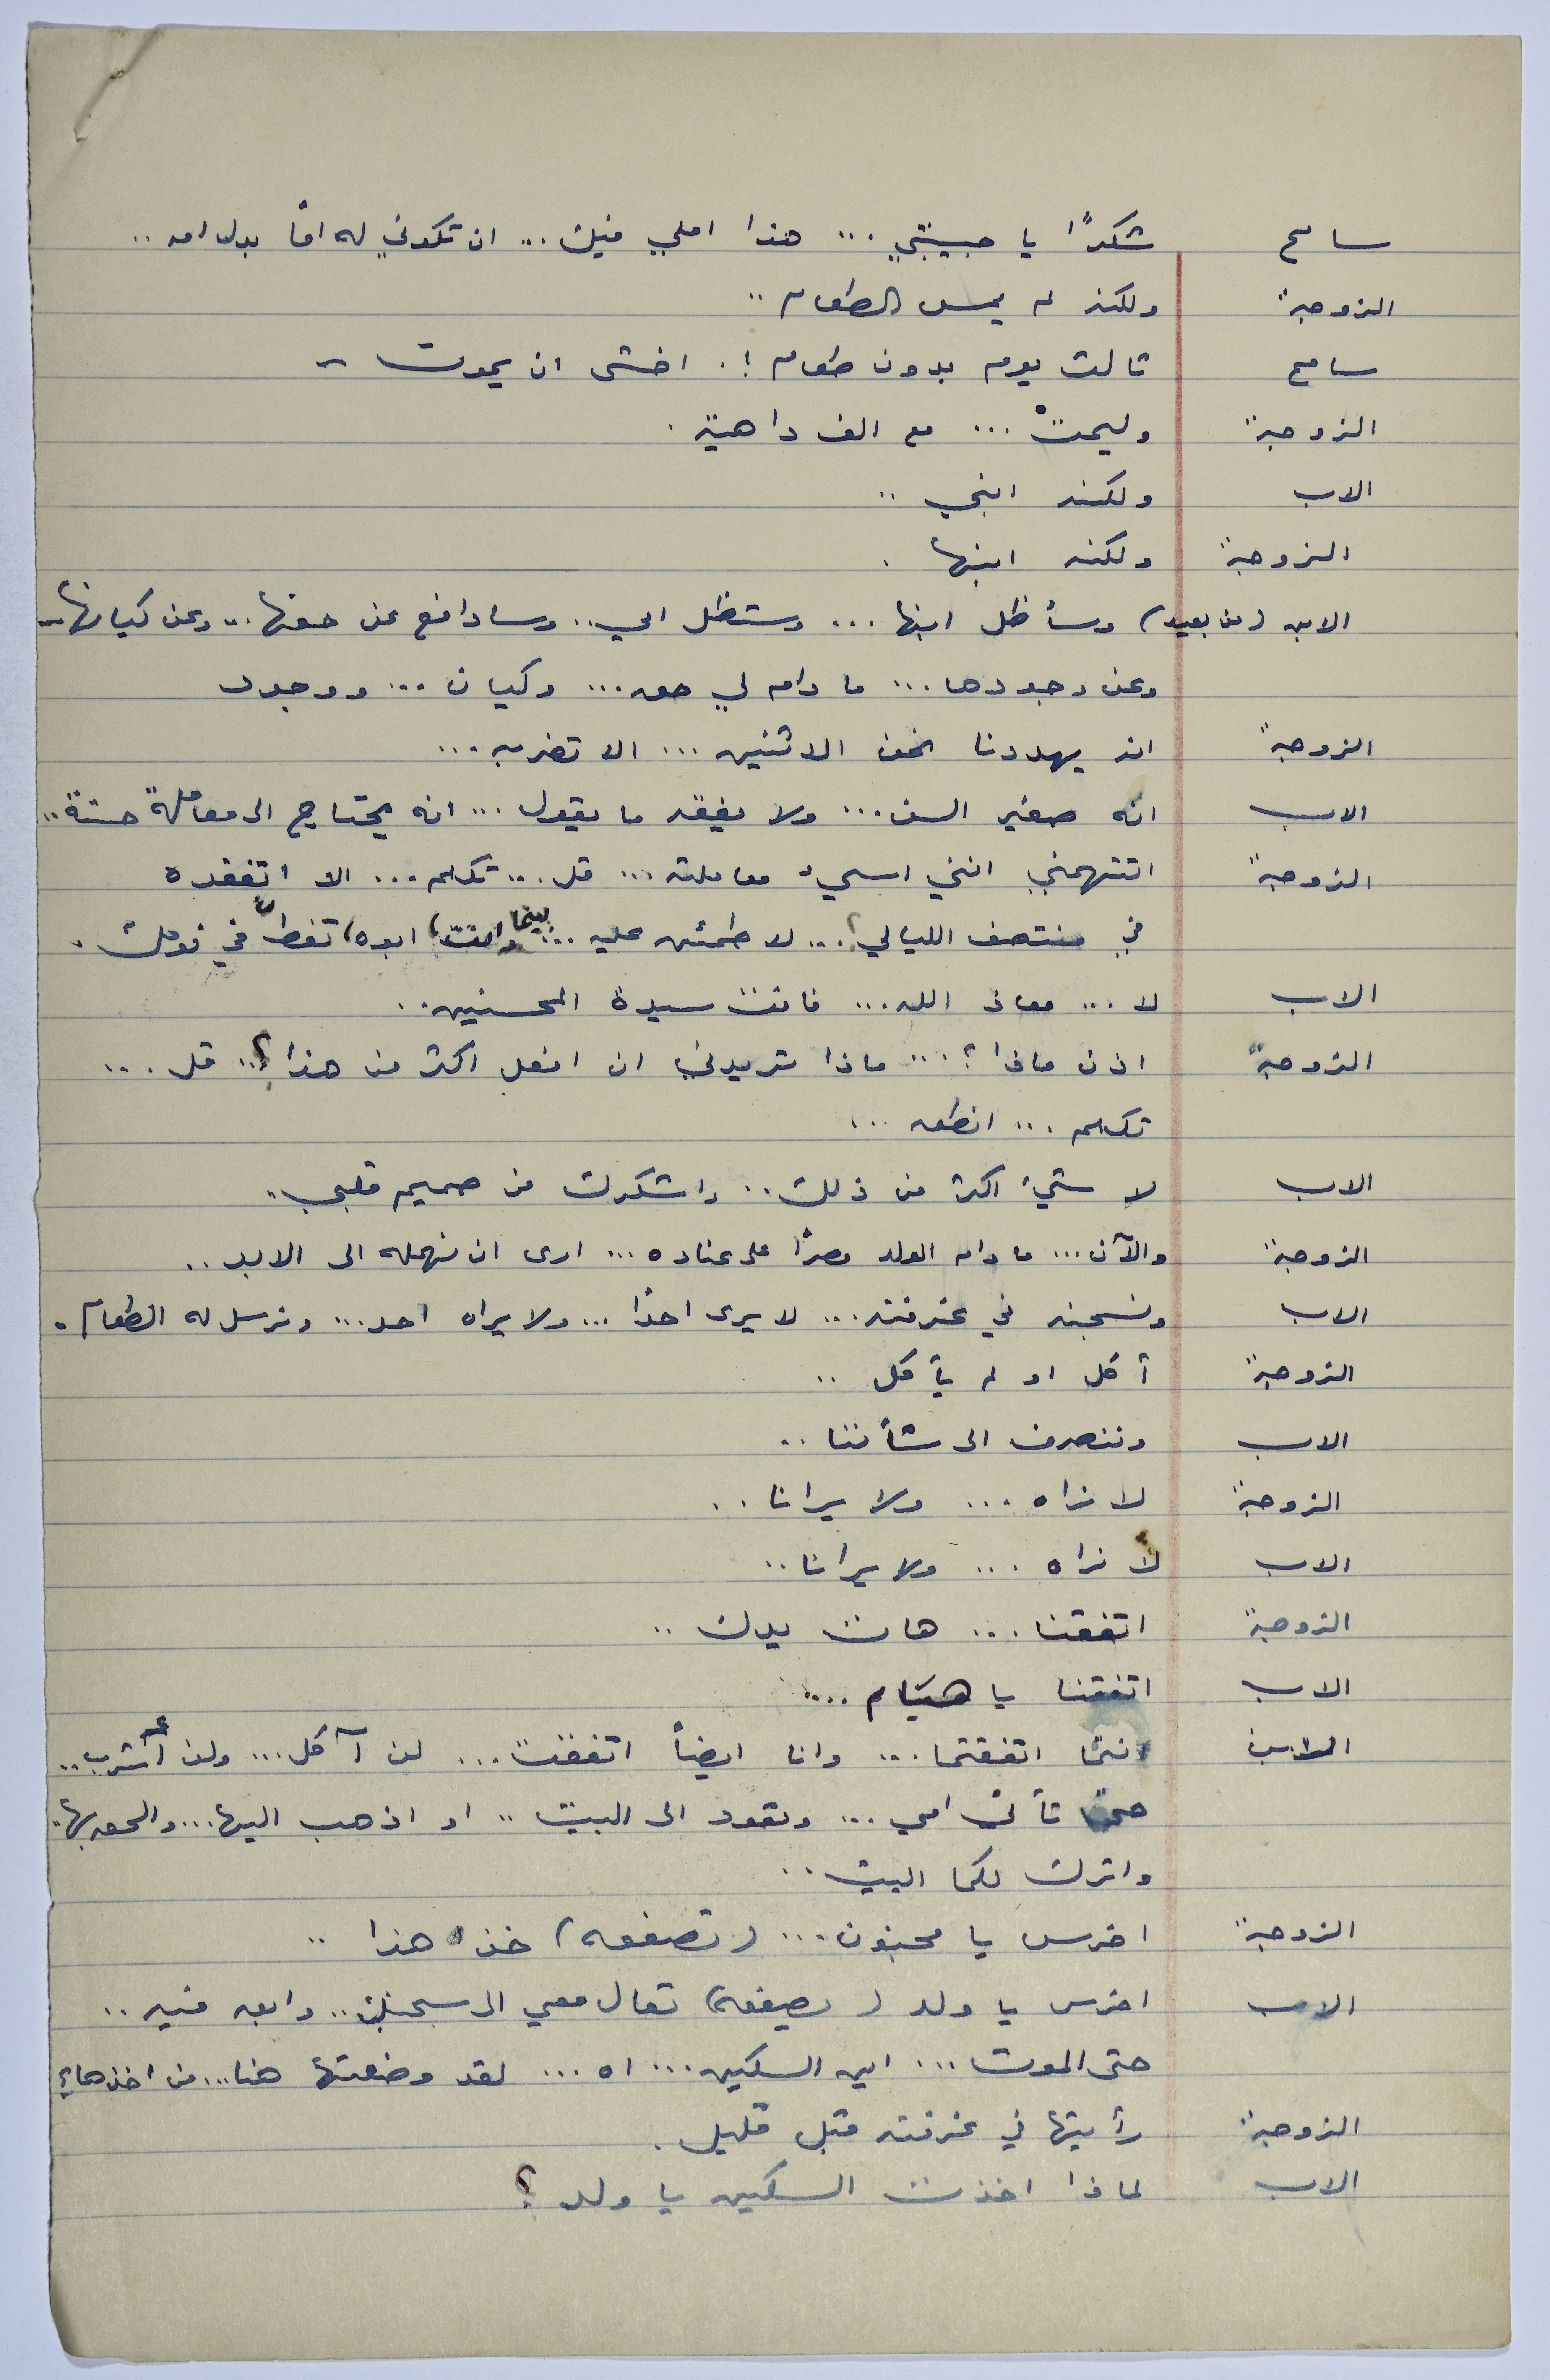 سامح شكرًا يا حبيبتي ... هذا املي فيك ... ان تكوني له امًا بدل امه ..
الزوجة ولكنه لم يمس الطعام ..
سامح ثالث يوم بدون طعام ! . اخشى ان يموت -
الزوجة وليمتْ ... مع الف داهية .
الاب ولكنه ابني ..
الزوجة ولكنه ابنها .
الابن (من بعيد) وسأظل ابنها ... وستظل امي .. وسادافع عن حقها .. وعن كيانها ..
وعن وجودها ... ما دام لي حق ... وكيان ... ووجود
الزوجة انه يهددنا نحن الاثنين ... الا تضربه ...
الاب انه صغير السن ... ولا يفقه ما يقول ... انه يحتاج الى معاملة حسنة ..
الزوجة اتتهمني انني اسيء معاملته ... قل ... تكلم ... الا اتفقده
في منتصف الليالي؟ ... لاطمئن عليه ... بينما انت (ابوه) تغط في نومك .
الاب لا ... معاذ الله ... فانت سيدة المحسنين ..
الزوجة اذن ماذا ؟ ... ماذا تريدني ان افعل اكثر من هذا ؟ .. قل ...
تكلم ... انطق ...
الاب لا شيء اكثر من ذلك .. واشكرك من صميم قلبي ..
الزوجة والآن ... ما دام الولد مصرًا على عناده ... ارى ان نهمله الى الابد ..
الاب ونسجنه في غرفته ... لا يرى احدًا ... ولا يراه احد ... ونرسل له الطعام .
الزوجة أكل او لم يأكل ..
الاب وننصرف الى شأننا ..
الزوجة لا نراه ... ولا يرانا ..
الاب لا نراه ... ولا يرانا ..
الزوجة اتفقنا ... هات يدك ..
الاب اتفقنا يا هيام ...
الابن انتما اتفقتما ... وانا ايضاً اتفقت ... لن آكل ... ولن أشرب ..
حتى تأتي امي ... وتعود الى البيت .. او اذهب اليها ... والحق بها ..
واترك لكما البيت ..
الزوجة اخرس يا مجنون ... (تصفعه) خذ هذا ..
الاب اخرس يا ولد (يصفعه) تعال معي الى سجنك .. وابق فيه ..
حتى الموت ... اين السكين ... اه ... لقد وضعتها هنا ... من اخذها ؟
الزوجة رأيتها في غرفته قبل قليل .
الاب لماذا اخذت السكين يا ولد ؟